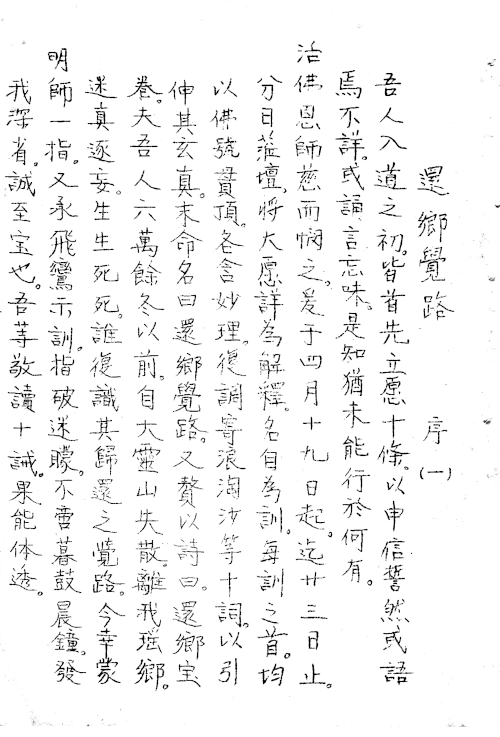 還鄉覺路　序(一)
吾人入道之初。皆首先立愿十條。以申信誓然或語
焉不詳。或誦言忘味。是知猶未能行於何有。
活佛恩師慈而憫之。爰于四月十九日起。迄廿三日止。
分日蒞壇。將大愿詳為解釋。名自為訓。每訓之首。均
以佛號貫頂。各含妙理。復調寄浪淘沙等十詞。以引
伸其玄真。末命名曰還鄉覺路。又贅以詩曰。還鄉宝
卷。夫吾人六萬餘冬以前。自大靈山失散。離我瑶鄉。
迷真逐妄。生生死死。誰復識其歸還之覺路。今幸蒙
明師一指。又承飛鸞示訓。指破迷矇。不啻暮鼓晨鐘。發
我深省。誠至宝也。吾等敬讀十誡。果能体透。